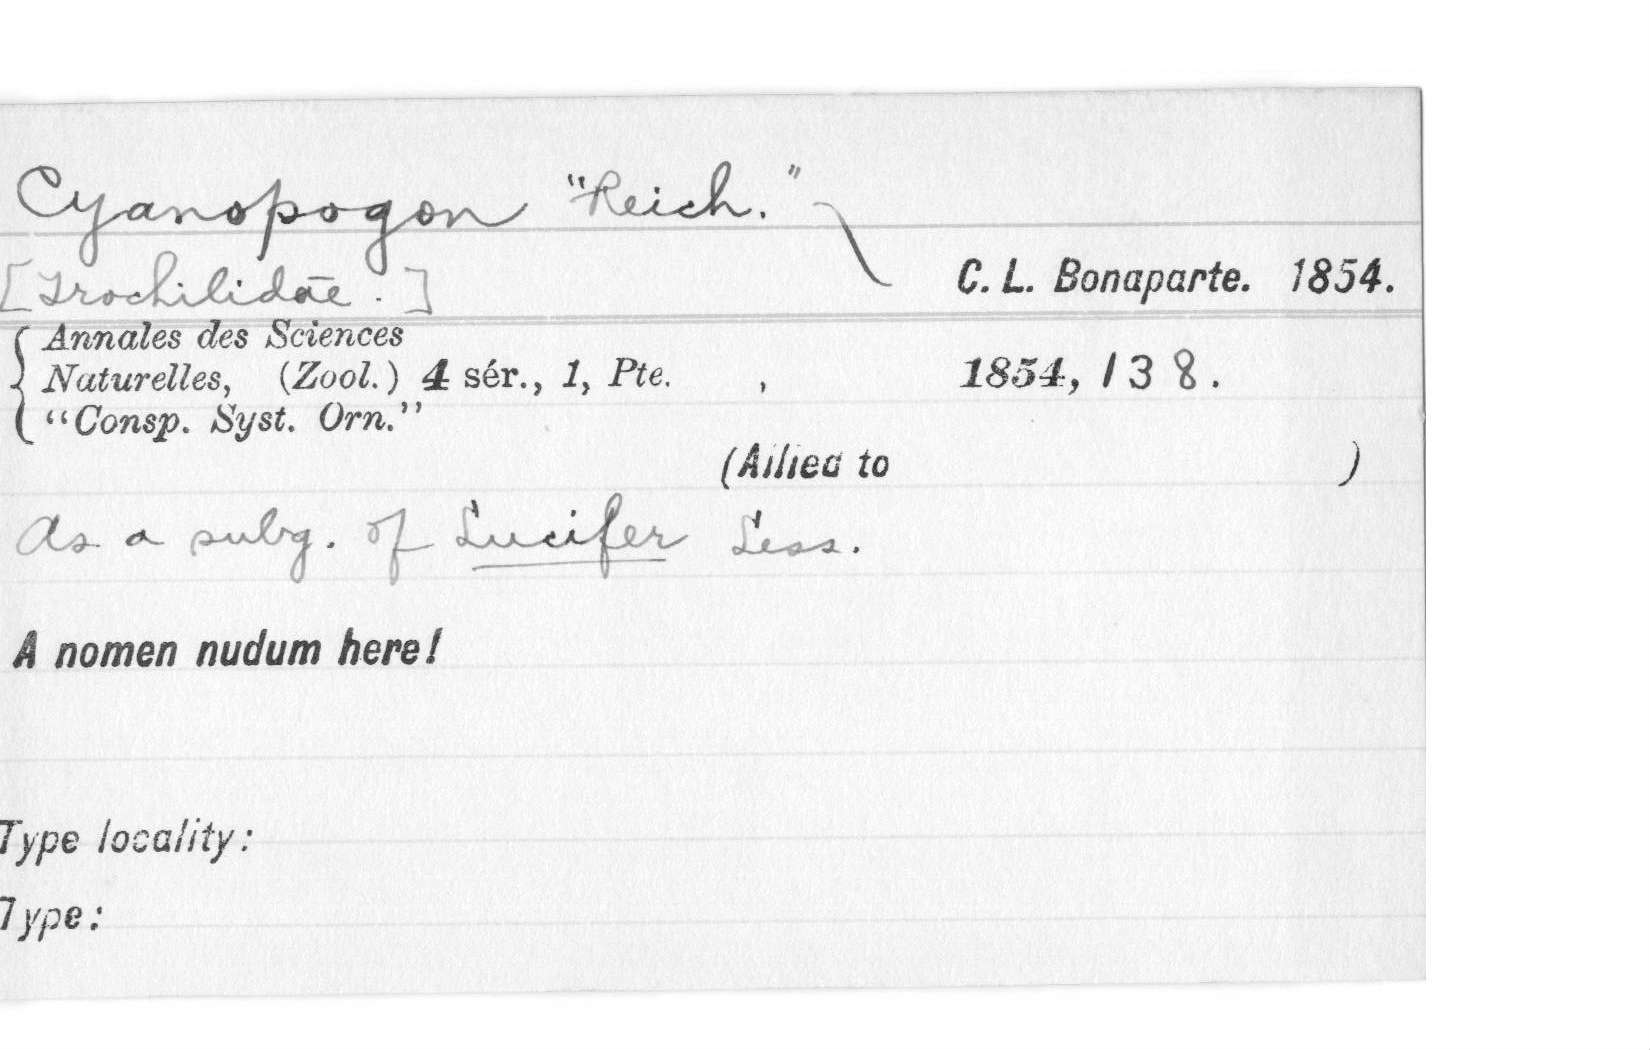 Cyanopogon "Reich."
[Trochilidae.] C. L. Bonaparte. 1854.
Annales des Sciences
Naturelles, (Zool.) 4 sér., 1, Pte. , 1854, 138.
"Consp. Syst. Orn."
(Allied to )
As a subg. of Lucifer Less.
A nomen nudum here!
Type locality:
Type: